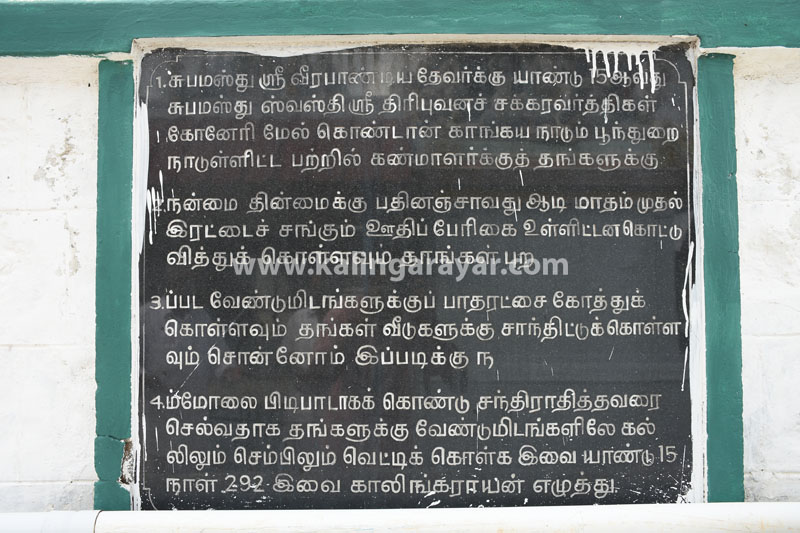 1. சுபமஸ்து ஸ்ரீ வீரபாண்டிய தேவர்க்கு யாண்டு 15ஆவது
சுபமஸ்து ஸ்வஸ்திஸ்ரீ திரிபுவனச் சக்கரவர்த்திகள்
கோனேரி மேல் கொண்டான் காங்கய நாடும் பூந்துறை
நாடுள்ளிட்ட பற்றில் கண்மாளர்க்குத் தங்களுக்கு
2. நன்மை தின்மைக்கு பதினஞ்சாவது ஆடி மாதம் முதல்
இரட்டைச் சங்கும் ஊதிப் பேரிகை உள்ளிட்டனகொட்டு
வித்துக் கொள்ளவும் தாங்கள் புற
www.kalingarayar.com
3. ப்பட வேண்டுமிடங்களுக்குப் பாதரட்சை கோத்துக்
கொள்ளவும் தங்கள் வீடுகளுக்கு சாந்திட்டுக்கொள்ள
வும் சொன்னோம் இப்படிக்கு ந
4. ம்மோலை பிடிபாடாகக் கொண்டு சந்திராதித்தவரை
செல்வதாக தங்களுக்கு வேண்டுமிடங்களிலே கல்
லிலும் செம்பிலும் வெட்டிக் கொள்க இவை யாண்டு 15
நாள் 292 இவை காலிங்க்ராயன் எழுத்து.